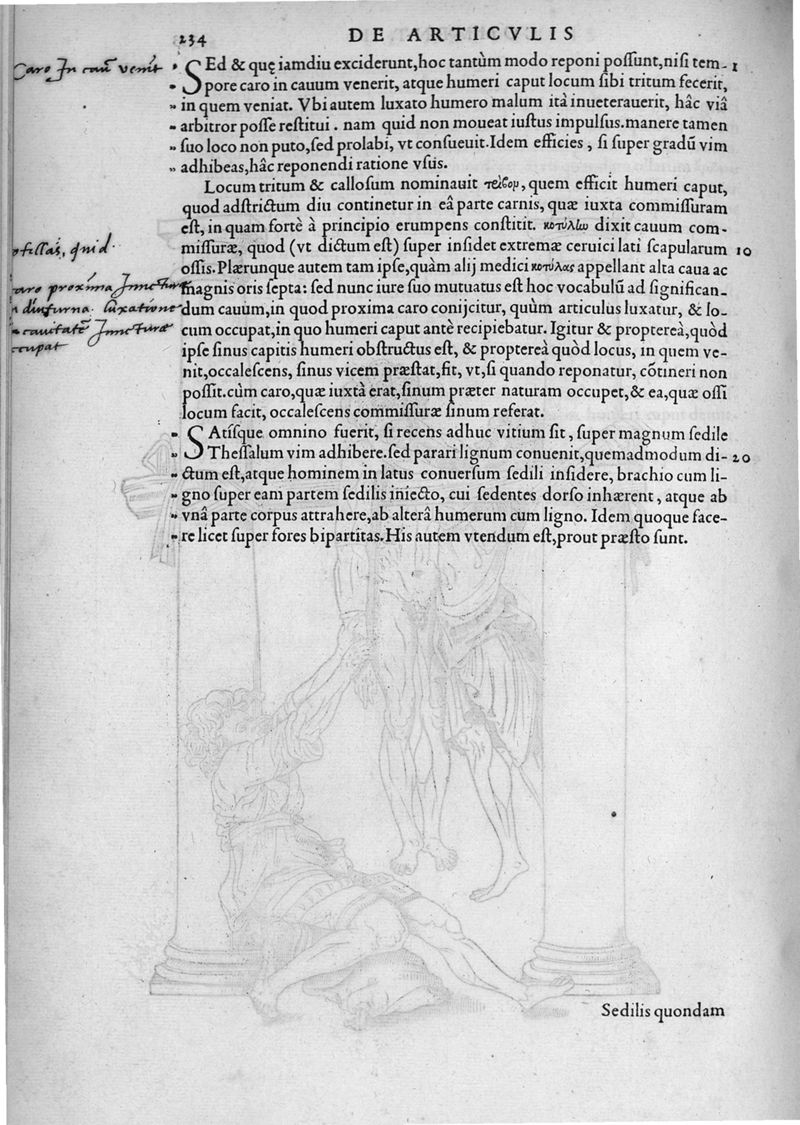 234
DE ARTICVLIS
Caro In
SEd & quę iamdiu exciderunt, hoc tantùm modo reponi possunt, nisi tem- 1
pore caro in cauum venerit, atque humeri caput locum sibi tritum fecerit,
in quem veniat. Vbi autem luxato humero malum ità inueterauerit, hâc viâ
arbitror posse restitui. nam quid non moueat iustus impulsus. manere tamen
suo loco non puto, sed prolabi, vt consueuit. Idem efficies, si super gradũ vim
adhibeas, hâc reponendi ratione vsus.
Locum tritum & callosum nominauit quem efficit humeri caput,
quod adstrictum diu continetur in eâ parte carnis, quæ iuxta commissuram
est, in quam fortè à principio erumpens constitit. dixit cauum com-
quid.
missuræ, quod (vt dictum est) super insidet extremæ ceruici lati scapularum 10
ossis. Plærunque autem tam ipse, quàm alij medici κοτύλας appellant alta caua ac
proxima
magnis oris septa: sed nunc iure suo mutuatus est hoc vocabulũ ad significan-
luxatione
dum cauum, in quod proxima caro conijcitur, quùm articulus luxatur, & lo-
cum occupat, in quo humeri caput antè recipiebatur. Igitur & proptereà, quòd
ipse sinus capitis humeri obstructus est, & proptereà quòd locus, in quem ve-
nit, occalescens, sinus vicem præstat, fit, vt, si quando reponatur, cõtineri non
possit. cùm caro, quæ iuxtà erat, sinum præter naturam occupet, & ea, quæ ossi
locum facit, occalescens commissuræ sinum referat.
SAtísque omnino fuerit, si recens adhuc vitium sit, super magnum sedile
Thessalum vim adhibere. sed parari lignum conuenit, quemadmodum di- 20
ctum est, atque hominem in latus conuersum sedili insidere, brachio cum li-
gno super eam partem sedilis iniecto, cui sedentes dorso inhærent, atque ab
vnâ parte corpus attrahere, ab alterâ humerum cum ligno. Idem quoque face-
re licet super fores bipartitas. His autem vtendum est, prout præsto sunt.
Sedilis quondam